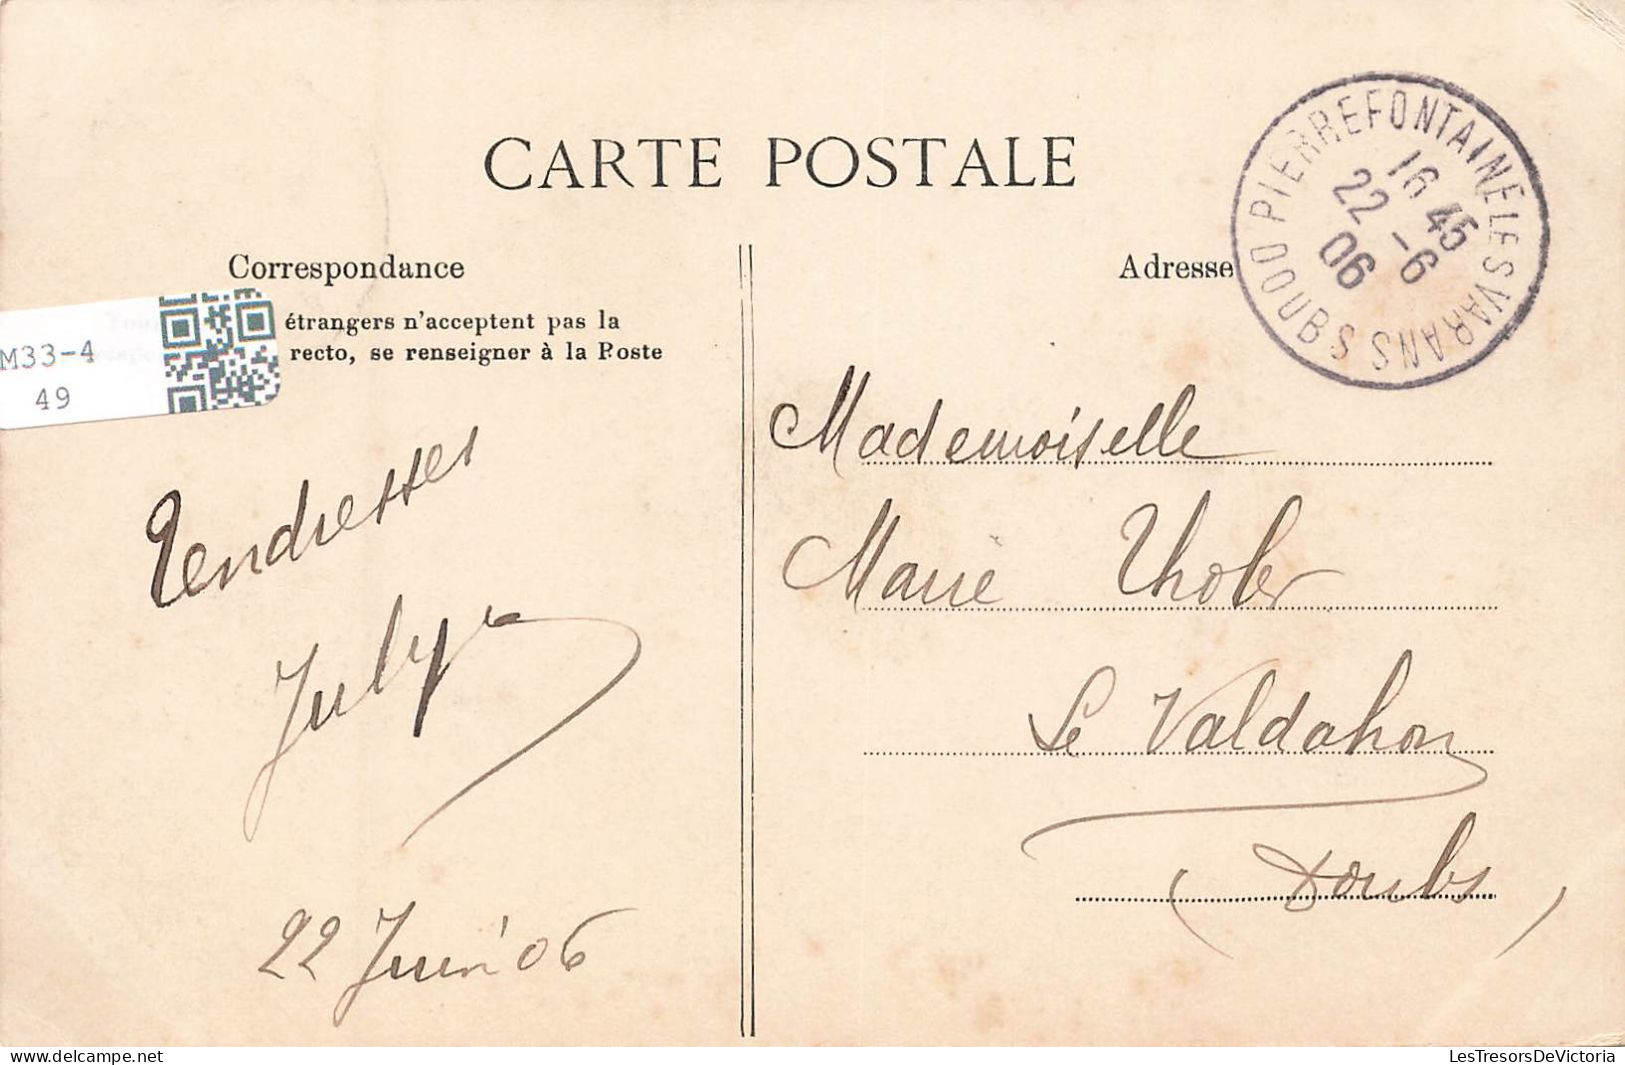 CARTE POSTALE
Correspondance
étrangers n'acceptent pas la
recto, se renseigner à la Poste
M33-4
49
Tendresses
July
22 Juin 06
Adresse
PIERREFONTAINE LES VARANS DOUBS
16 45
22 -6
06
Mademoiselle
Marie Tholer
Le Valdahon
(Doubs)
LesTresorsDeVictoria